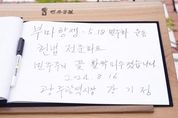 부마항쟁 - 5.18 민주화 운동
헌법 전문 수록
민주주의 꽃 활짝 피우겠습니다
2024. 8. 16
광주광역시장 강기정